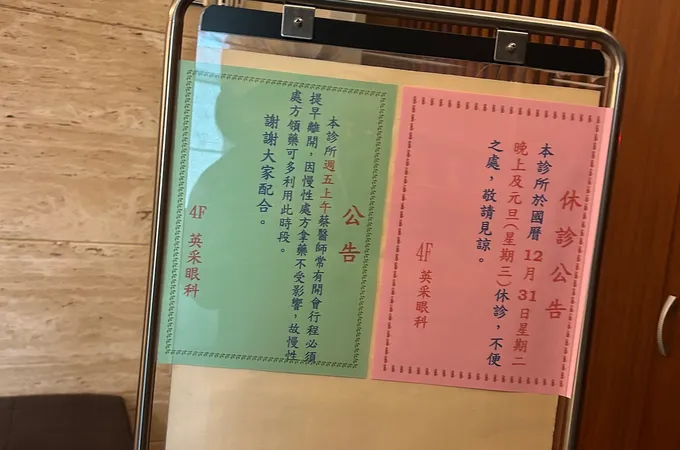 休診公告
本診所於國曆12月31日星期二
晚上及元旦(星期三)休診，不便
之處，敬請見諒。
4F 英采眼科
公告
本診所週五上午蔡醫師常有開會行程必須
提早離開，因慢性處方拿藥不受影響，故慢性
處方領藥可多利用此時段。
謝謝大家配合。
4F 英采眼科